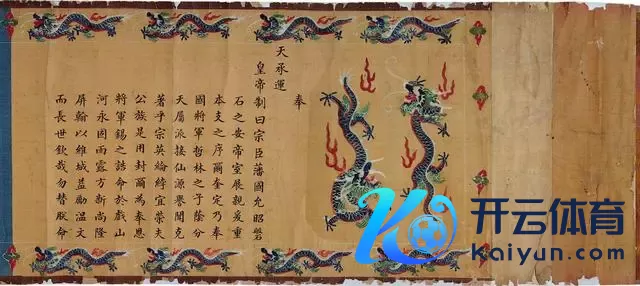 奉
天承運
皇帝制曰宗臣藩國允昭磐
石之安帝室展親爰重
本支之序爾奎定乃奉
國將軍哲林之子蔭分
天屬派接仙源譽聞克
著乎宗英綸綍宜榮夫
公族是用封爾為奉恩
將軍錫之誥命於戲山
河永固雨露方新尚隆
屏翰以維城益勵溫文
而長世欽哉勿替朕命
开云体育
kaiyun.com